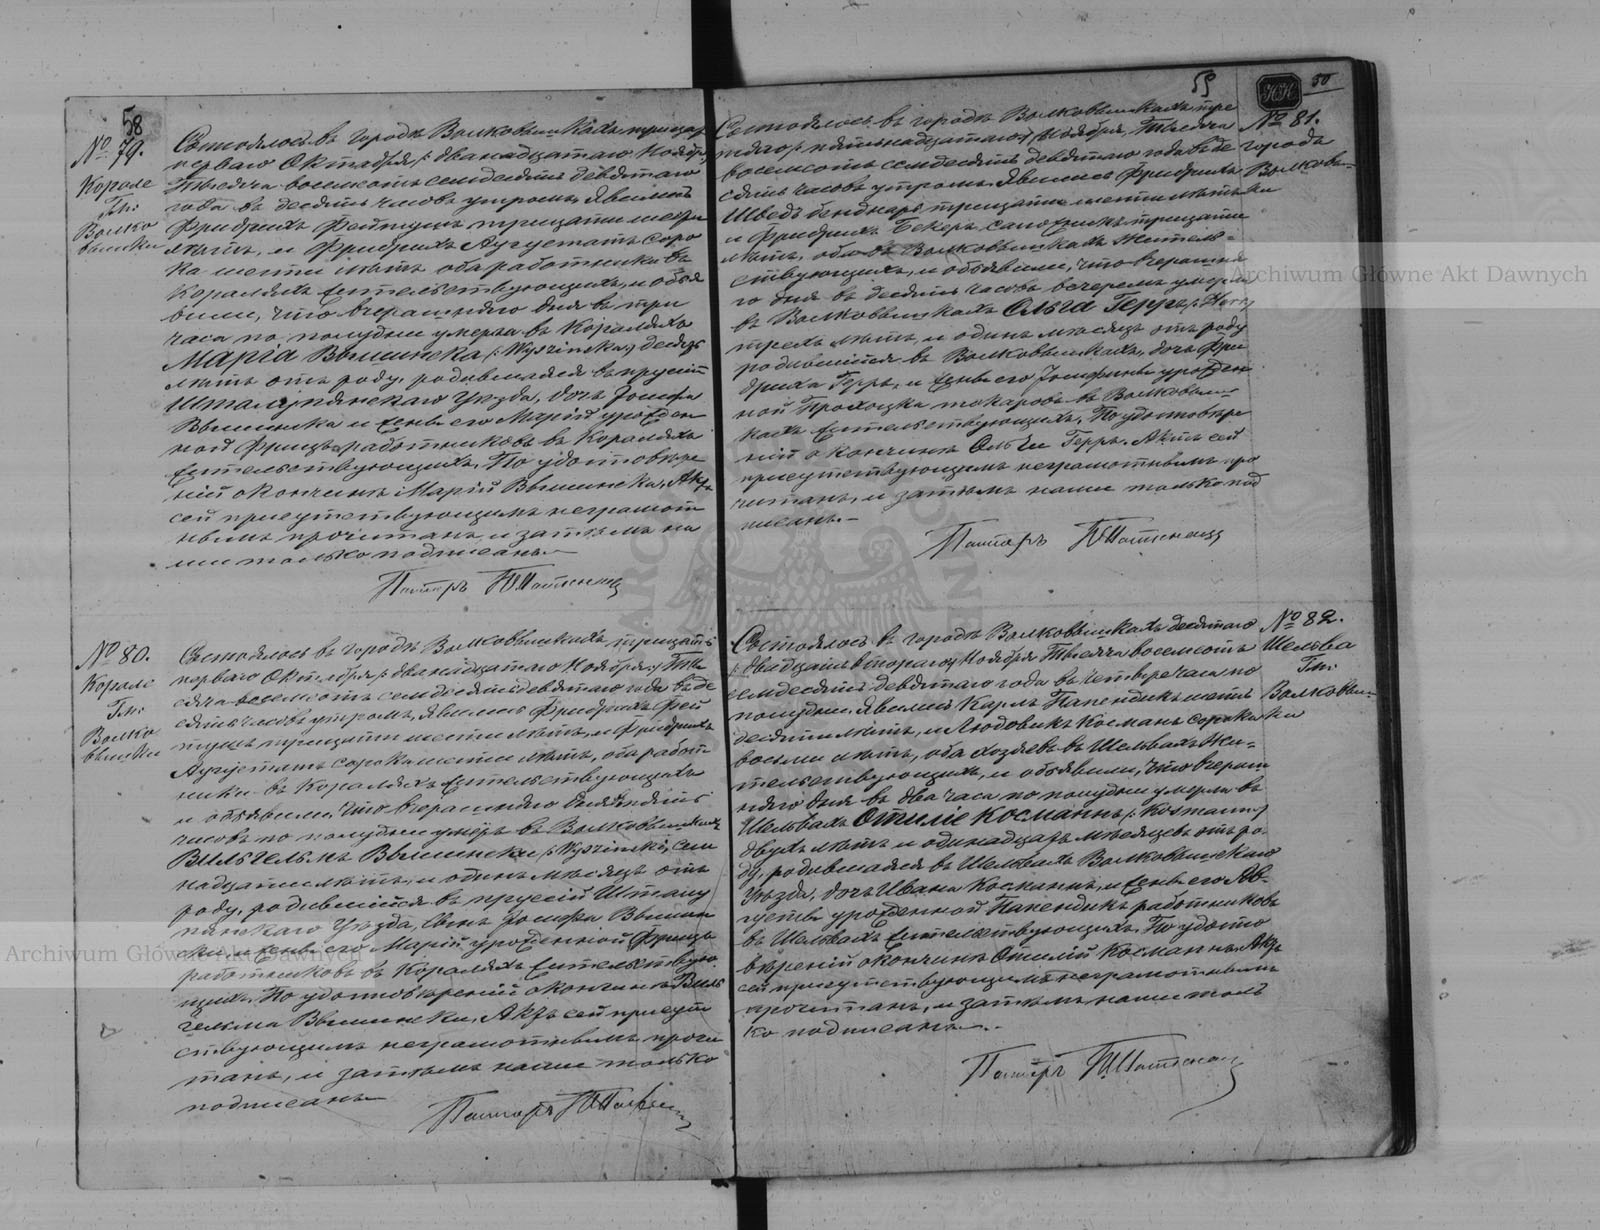 58
№ 79.
Короле
Гм:
Волко
вышки
Состоялось въ городѣ Волковышкахъ тридцать
перваго Октября /: двѣнадцатаго Ноября,
тысяча восемсотъ семдесятъ девятаго
года въ десять часовъ утромъ, Явились
Фридрихъ тридцати шести
лѣтъ, и Фридрихъ Аугустатъ соро
ка шести лѣтъ оба работники въ
Короляхъ жительствующіе, и объя
вили, что вчерашняго дня въ три
часа по полудни умерла въ Короляхъ
Марія Вышинска /: Wyszinska :/ десять
лѣтъ отъ роду, родившаяся въ пруссіи
Шталупянскаго Уѣзда, дочь Іосифа
Вышинска и жены его Маріи урожден
ной Фрицъ работниковъ въ Короляхъ
жительствующихъ, По удостовѣре
ніи о кончинѣ Маріи Вышинска, Актъ
сей присутствующимъ неграмот
нымъ прочитанъ и затѣмъ на
ми только подписанъ
Пасторъ
№ 80.
Короле
Гм:
Волко
вышки
Состоялось въ городѣ Волковышкахъ тридцать
перваго Октября /: двѣнадцатаго Ноября :/ Ты
сяча восемсотъ семдесятъ девятаго года въ де
сять часовъ утромъ, Явились Фридрихъ
тридцати шести лѣтъ, и Фридрихъ
Аугустатъ сорока шести лѣтъ, оба работ
ники въ Короляхъ жительствующіе
и объявили, что вчерашняго дня въ пять
часовъ по полудни умеръ въ Волковышкахъ
Вильгельмъ Вышински /: Wyszinski, сем
надцати лѣтъ, и одинъ мѣсяцъ отъ
роду, родившійся въ пруссіи Шталу
пянскаго Уѣзда, сынъ Іосифа Вышин
ски и жены его Маріи урожденной Фрицъ
работниковъ въ Короляхъ жительствую
щихъ. По удостовѣреніи о кончинѣ Виль
гельма Вышински, Актъ сей присут
ствующимъ неграмотнымъ прочи
танъ, и затѣмъ нами только
подписанъ
Пасторъ
59
НК
50
№ 81.
городъ
Волковы-
шки
Состоялось въ городѣ Волковышкахъ тре
тяго /: пятьнадцатаго :/ Ноября, Тысяча
восемсотъ семдесятъ девятаго года въ де
сять часовъ утромъ. Явились Фридрихъ
Шведъ бенднаръ тридцати шести лѣтъ
и Фридрихъ Бекеръ, тридцати
лѣтъ, оба въ Волковышкахъ житель-
ствующіе, и объявили, что вчерашня
го дня въ десять часовъ вечеромъ умерла
въ Волковышкахъ Ольга Герръ /: Herr
трехъ лѣтъ, и одинъ мѣсяцъ отъ роду
родившаяся въ Волковышкахъ, дочь Фри
дриха Герръ, и жены его Іозефины урожден
ной токаровъ въ Волковыш-
кахъ жительствующихъ, По удостовѣре
ніи о кончинѣ Ольги Герръ, Актъ сей
присутствующимъ неграмотнымъ про
читанъ, и затѣмъ нами только под
писанъ.-
Пасторъ
№ 82.
Шельва
Гм:
Волковы-
шки
Состоялось въ городѣ Волковышкахъ десятаго
/: двадцать втораго :/ Ноября Тысяча восемсотъ
семдесятъ девятаго года въ четыре часа по
полудни. Явились Карлъ Папендикъ шесть
десяти лѣтъ, и Людовикъ Косманъ сорока
восьми лѣтъ, оба хозяева въ Шельвахъ жи-
тельствующіе, и объявили, что вчераш
няго дня въ два часа по полудни умерла въ
Шельвахъ Отиліе Косманнъ /: Kosmann :/
двухъ лѣтъ и одинадцать мѣсяцевъ отъ ро-
ду, родившаяся въ Шельвахъ Волковышскаго
Уѣзда, дочь Ивана Косманнъ, и жены его Ав-
густы урожденной Папендикъ работниковъ
въ Шельвахъ жительствующихъ. По удосто
вѣреніи о кончинѣ Отиліи Косманнъ, Актъ
сей присутствующимъ неграмотнымъ
прочитанъ, и затѣмъ нами толь
ко подписанъ.-
Пасторъ
Archiwum Główne Akt Dawnych
Archiwum Główne Akt Dawnych